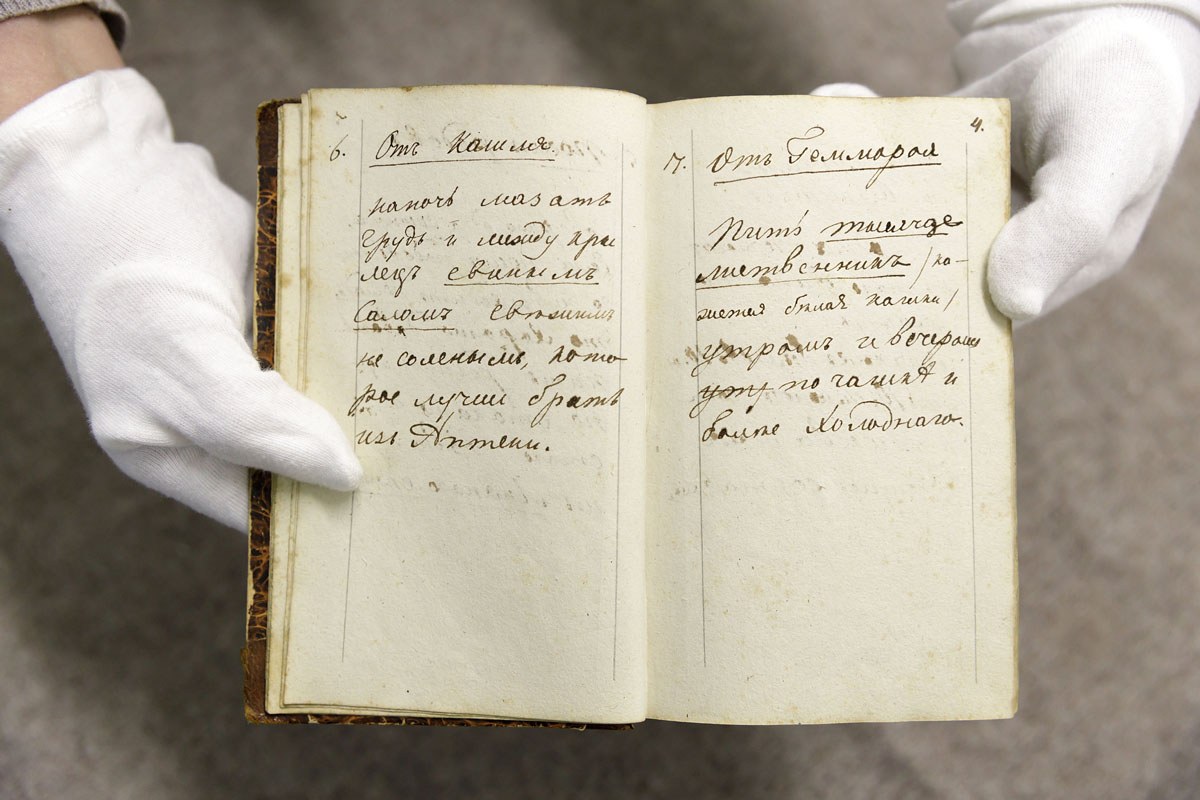 6. Отъ Кашля
на ночь мазать
грудь и между кры
лецъ свинымъ
Саломъ свежимъ
не соленымъ, кото
рое лучше брать
изъ Аптеки.
4.
7. Отъ Гемморая
Пить тысяче
лиственникъ / ка-
жется белая кашка /
утромъ и вечеромъ
утр по чашке и
более Холоднаго.